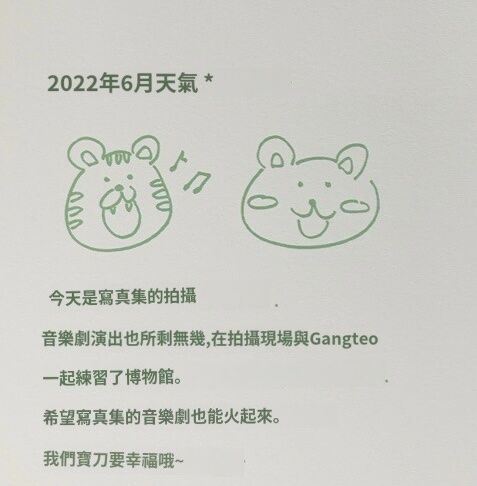 2022年6月天氣 *
今天是寫真集的拍攝
音樂劇演出也所剩無幾,在拍攝現場與Gangteo
一起練習了博物館。
希望寫真集的音樂劇也能火起來。
我們寶刀要幸福哦~